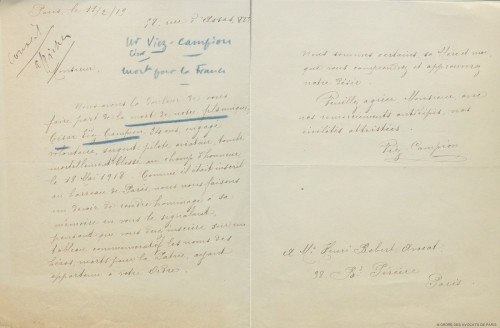 Paris, le 11/2/19
78, rue d'Assas, VIe
Conseil
afficher
Me Viez-Campion
lire
mort pour la France
Monsieur,
Nous avons la douleur de vous
faire part de la mort de notre fils unique
Campion, 23 ans, engagé
volontaire, sergent pilote aviateur, tombé
mortellement blessé au champ d'honneur,
le 18 Mai 1918. Comme il était inscrit
au barreau de Paris, nous nous faisons
un devoir de rendre hommage à sa
mémoire en vous le signalant,
pensant que vous
tableau commémoratif les noms des
héros morts pour la Patrie, ayant
appartenu à votre Ordre.
Nous sommes certains,
que vous comprendrez et approuverez
notre désir.
Veuillez agréer Monsieur, avec
nos remerciements anticipés, nos
civilités attristées.
Viez Campion
à Me Henri Robert Avocat
Bd Pereire
Paris
© ORDRE DES AVOCATS DE PARIS